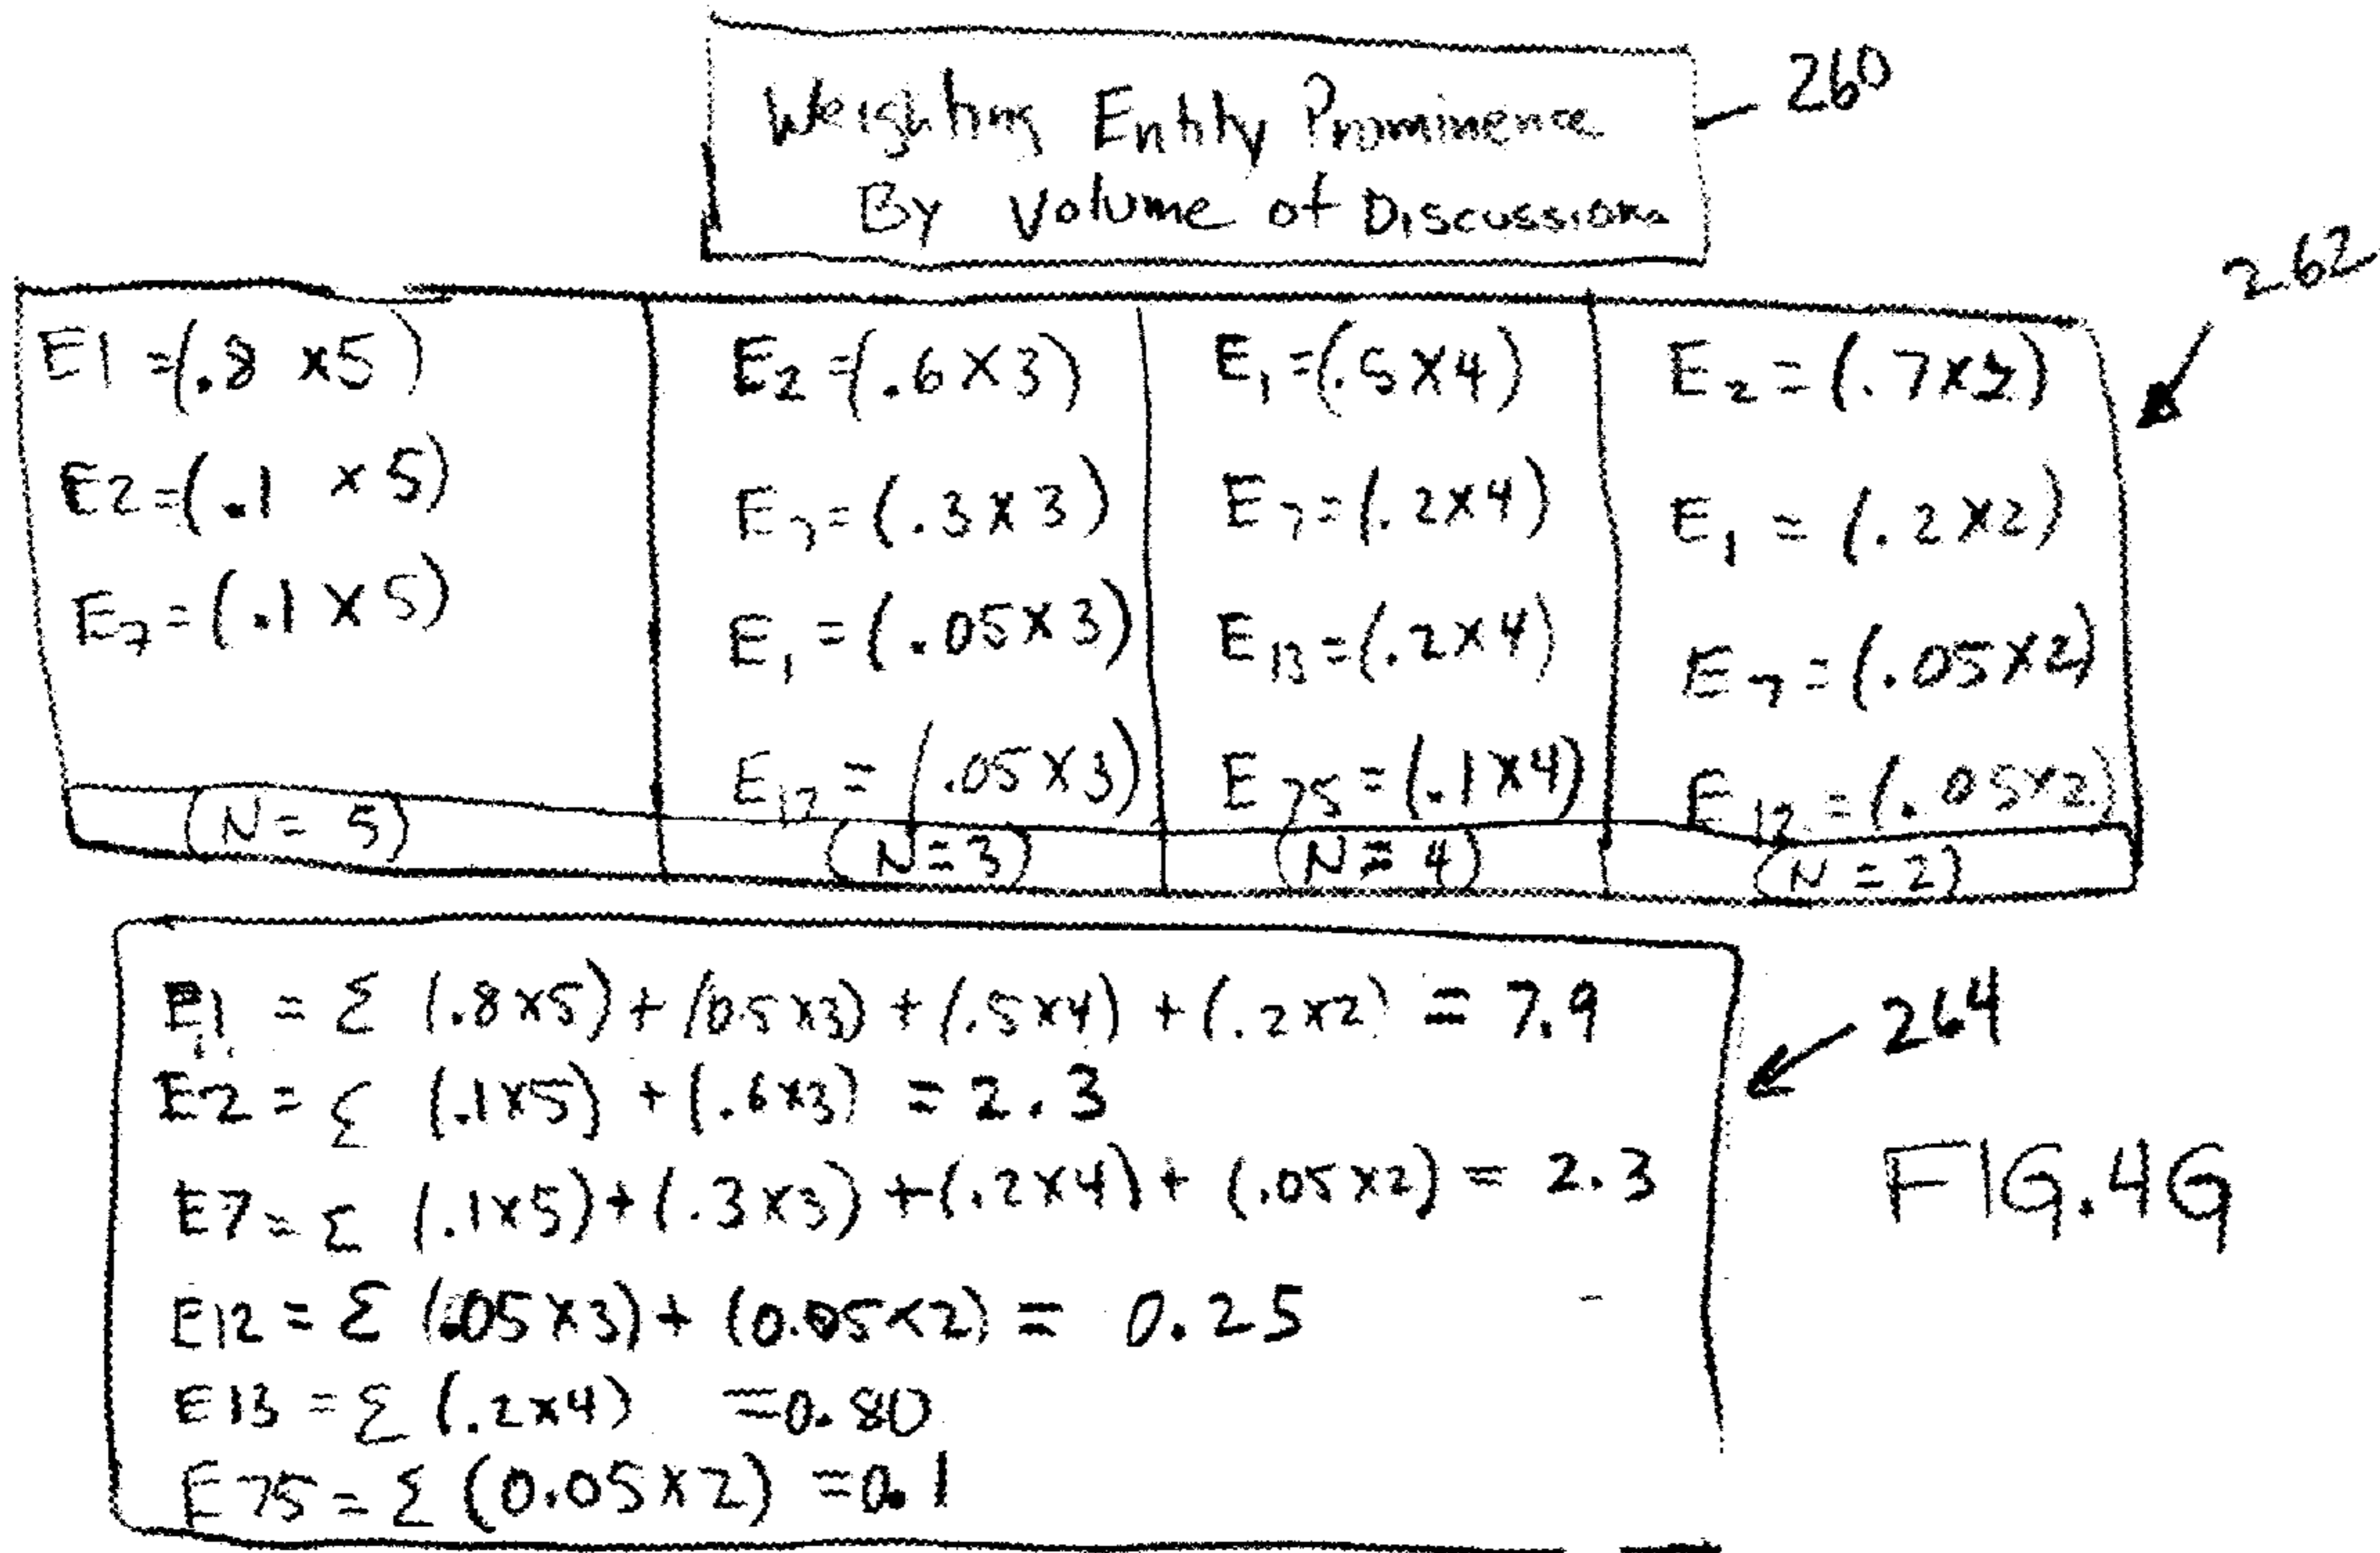 Weighting Entity Prominence
By Volume of Discussions
260
262
E1 =(.8 x5)
E2=(.1 x 5)
E7=(.1 X 5)
(N= 5)
E2=(.6X3)
E7=(.3x3)
E1=(.05X3)
E12=(.05X3)
(N=3)
E1=(.5X4)
E7=(.2x4)
E13=(.2x4)
E75=(.1x4)
(N=4)
E2=(.7x2)
E1=(.2x2)
E7=(.05x2)
E12=(.05x2)
(N=2)
E1 = Σ (.8x5)+(05x3)+(.5x4)+(.2x2) = 7.9
E2= Σ (.1x5)+(.6x3) =2.3
E7=Σ (.1x5)+(.3x3)+(.2x4)+(.05x2)= 2.3
E12=Σ (.05X3)+(0.05x2)= 0.25
E13=Σ(.2x4) =0.80
E75=Σ(0.05x2)=0.1
264
FIG.4G